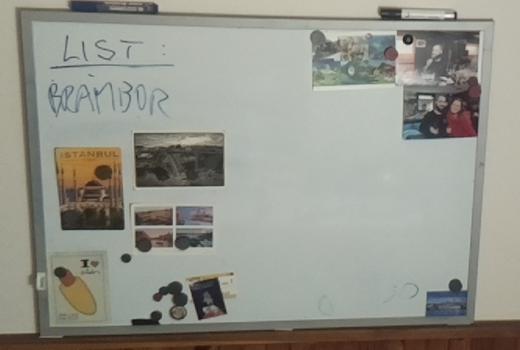 LIST:
BRAMBOR
ISTANBUL
I ♥